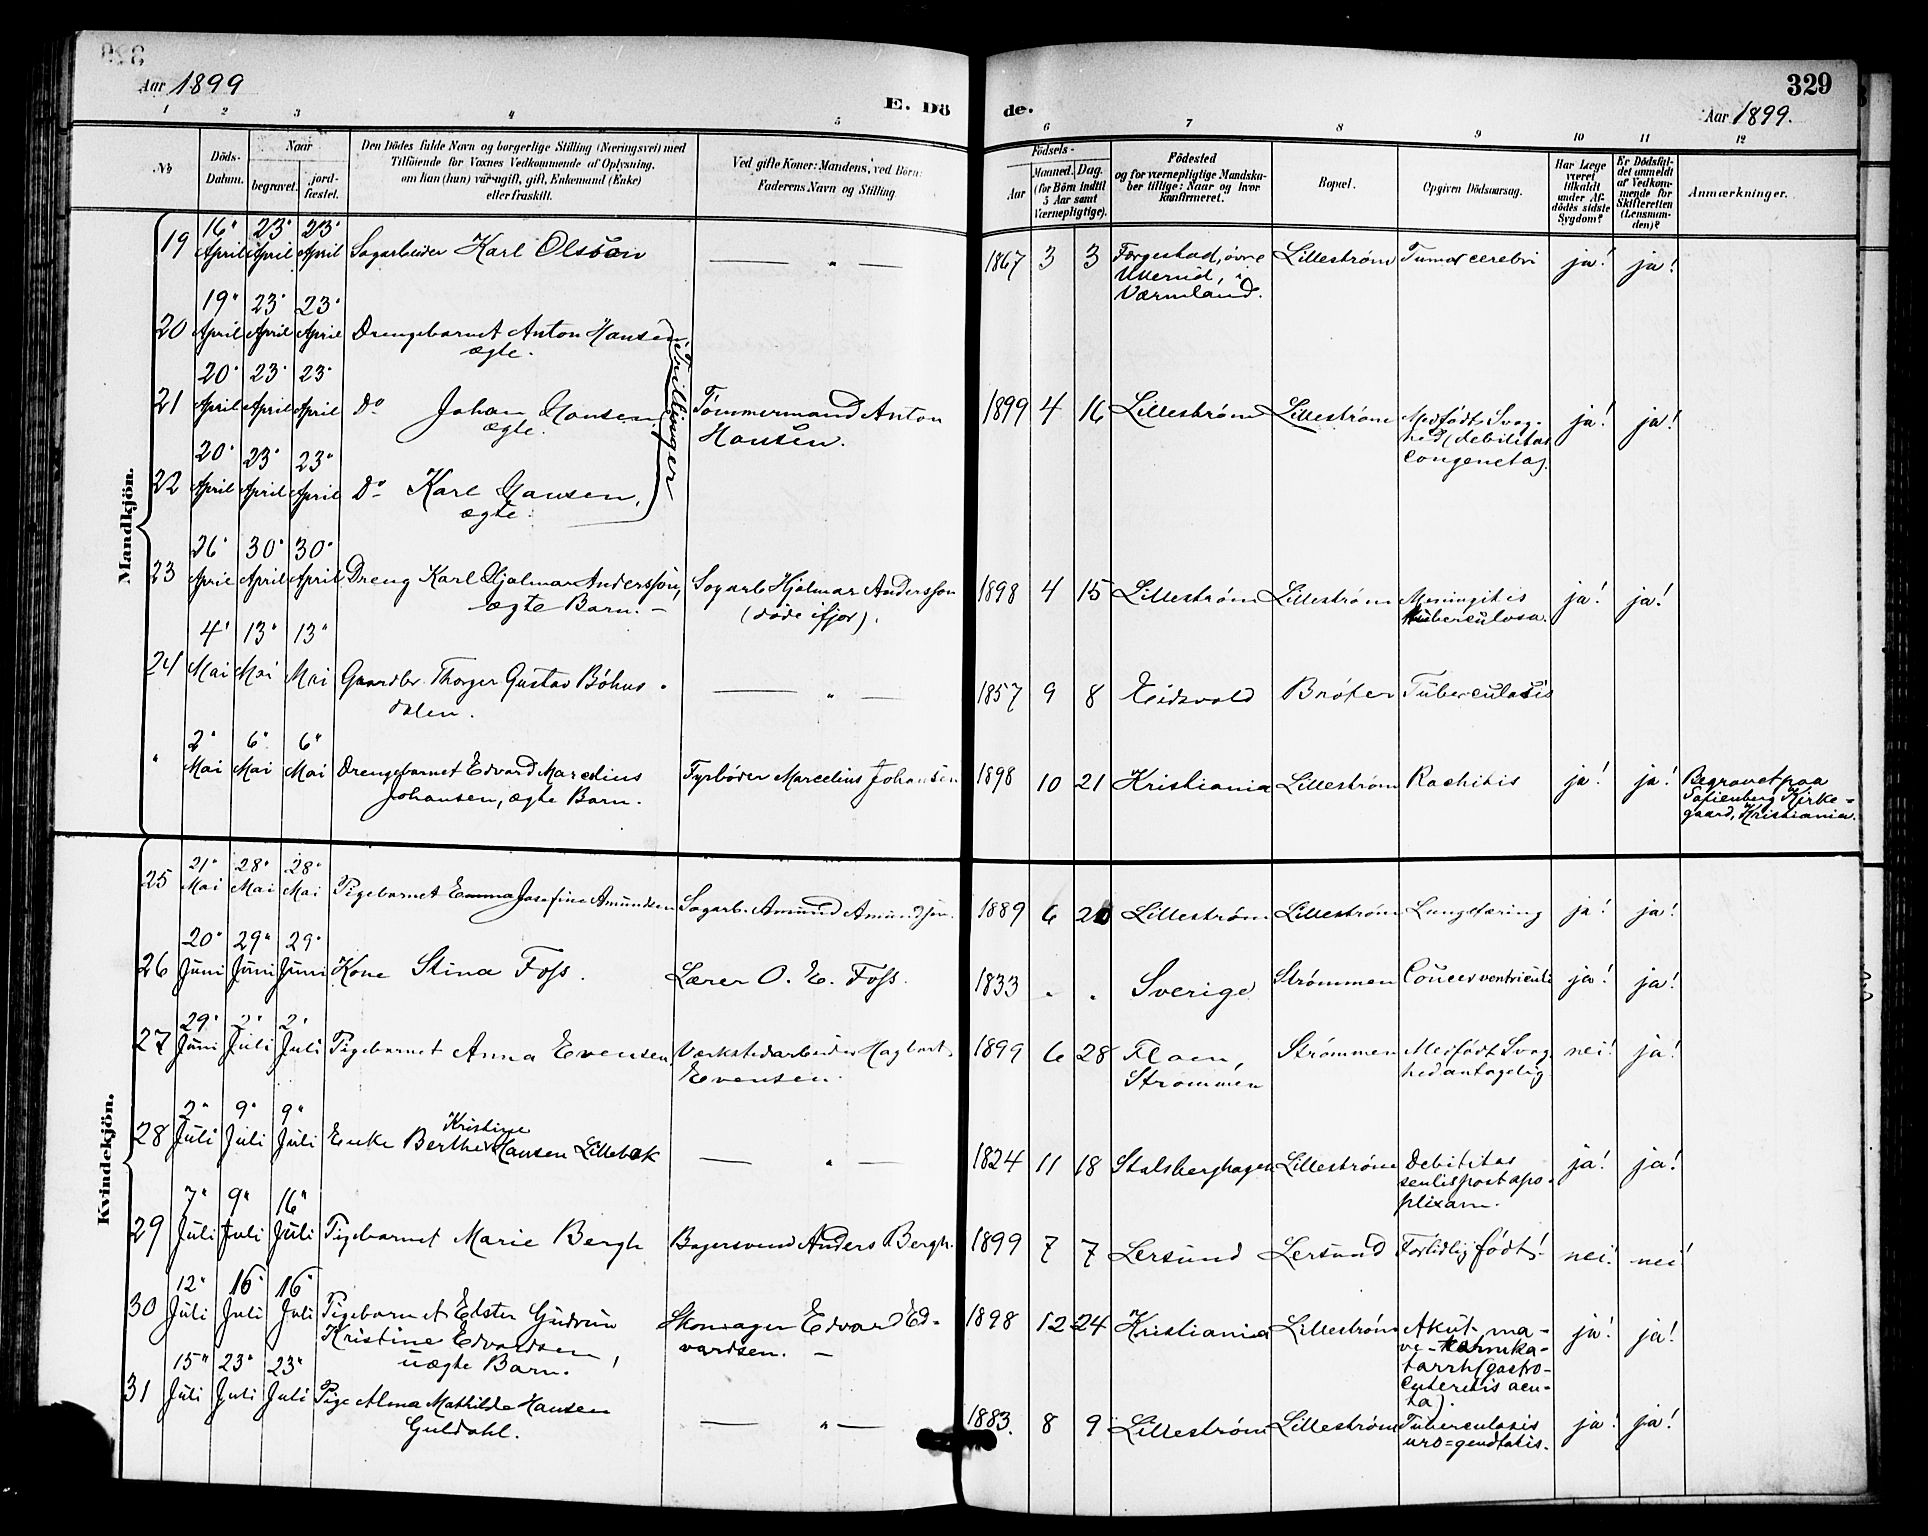 Aar 1899
E. Dö
de.
329
Aar 1899.
1 2 3 4 5 6 7 8 9 10 11 12
No
Döds-
Datum.
Naar
begravet.
jord-
fæstet.
Den Dödes fulde Navn og borgerlige Stilling (Næringsvei) med
Tilföiende for Voxnes Vedkommende af Oplysning,
om han (hun) var ugift, gift, Enkemand (Enke)
eller fraskilt.
Ved gifte Koner: Mandens, ved Börn:
Faderens Navn og Stilling
Födsels-
Aar
Maaned. Dag.
(for Börn indtil
5 Aar samt
Værnepligtige).
Födested
og for værnepligtige Mandska-
ber tillige: Naar og hvor
konfirmeret.
Bopæl.
Opgiven Dödsaarsag.
Har Læge
været
tilkaldt
under Af-
dödes sidste
Sygdom?
Er Dödsfal-
det anmeldt
af Vedkom-
mende for
Skifteretten
(Lensman-
den)?
Anmærkninger.
Mandkjön.
19 16' April 23' April 23' April Sagarbeider Karl Olsson — " — 1867 3 3 øvre
Ullerud, i
Værmland.
Lillestrøm Tumor cerebri ja! ja!
20 19' April 23' April 23' April Drengebarnet Anton Hansen,
ægte.
21 20' April 23' April 23' April Do Johan Hansen,
ægte.
Trillinger
Tømmermand Anton
Hansen.
1899 4 16 Lillestrøm Lillestrøm Medfødt Svag-
hed (debilitas
congenita). ja! ja!
22 20' April 23' April 23' April Do Karl Hansen,
ægte.
23 26' April 30' April 30' April Dreng Karl Hjalmar Andersson,
ægte Barn. —
Sagarb Hjalmar Andersson
(døde ifjor).
1898 4 15 Lillestrøm Lillestrøm Meningitis
tuberculosa. ja! ja!
24 4' Mai 13' Mai 13' Mai Gaardbr. Thorger Gustav Bøhus-
dalen.
— " — 1857 9 8 Eidsvold Brøter Tuberculosis
" 2' Mai 6' Mai 6' Mai Drengebarnet Edvard Marcelius
Johansen, ægte Barn.
Fyrbøder Marcelius Johansen 1898 10 21 Kristiania Lillestrøm Rachitis ja! ja! Begravet paa
Sofienberg Kirke-
gaard, Kristiania.
Kvindekjön.
25 21' Mai 28' Mai 28' Mai Pigebarnet Emma Josefine Amundsen Sagarb. Amund Amundsen. 1889 6 20 Lillestrøm Lillestrøm Lungetæring ja! ja!
26 20' Juni 29' Juni 29' Juni Kone Stina Foss. Lærer O. E. Foss. 1833 " " Sverige Strømmen Cancer ventriculi ja! ja!
27 29' Juni 2' Juli 2' Juli Pigebarnet Anna Evensen, Værkstedarbeider Hagbart
Evensen.
1899 6 28 Flaen,
Strømmen
Strømmen Medfødt Svag-
hed antagelig nei! ja!
28 2' Juli 9' Juli 9' Juli Enke Berthe Kristine Hansen Lillebæk — " — 1824 11 18 Stalsberghagen Lillestrøm Debilitas
senlis post apo-
plixam. ja! ja!
29 7' Juli 9' Juli 16' Juli Pigebarnet Marie Bergh Bagersvend Anders Bergh. 1899 7 7 Lersund Lersund Fortidlig født! nei! nei!
30 12' Juli 16' Juli 16' Juli Pigebarnet Ester Gudrun
Kristine Edvardsen,
uægte Barn.
Skomager Edvard Ed-
vardsen. —
1898 12 24 Kristiania Lillestrøm Akut ma-
ve-tarmka-
tarrh (gastro-
enteritis acu-
ta). ja! ja!
31 15' Juli 23' Juli 23' Juli Pige Alma Mathilde Hansen
Guldahl.
— " — 1883. 8 9 Lillestrøm Lillestrøm Tuberculosis
uro=genitalis. ja! ja!